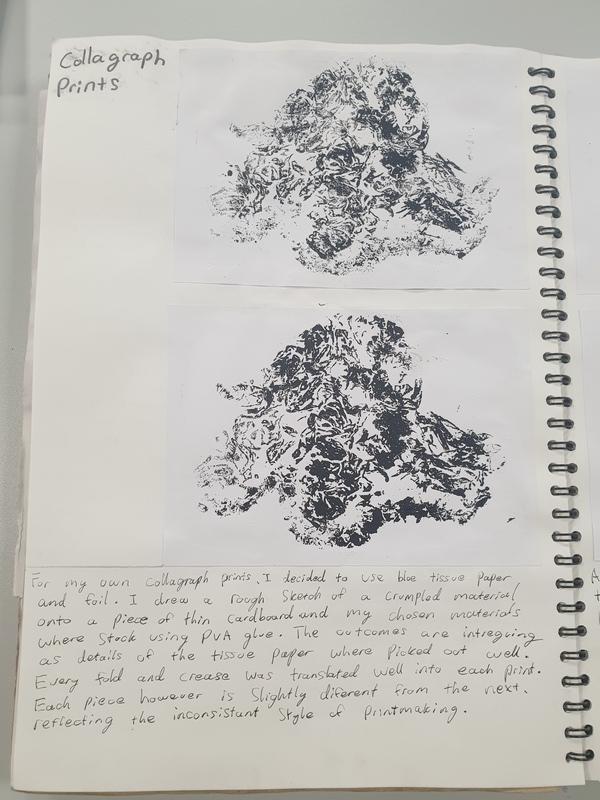 Collagraph
Prints
For my own collagraph prints, I decided to use blue tissue paper
and foil. I drew a rough Sketch of a crumpled material
onto a piece of thin cardboard and my chosen materials
where stock using PVA glue. The outcomes are intreguing
as details of the tissue paper where picked out well.
Every fold and crease was translated well into each print.
Each piece however is slightly diferent from the next.
reflecting the inconsistant Style of Printmaking.
A
t